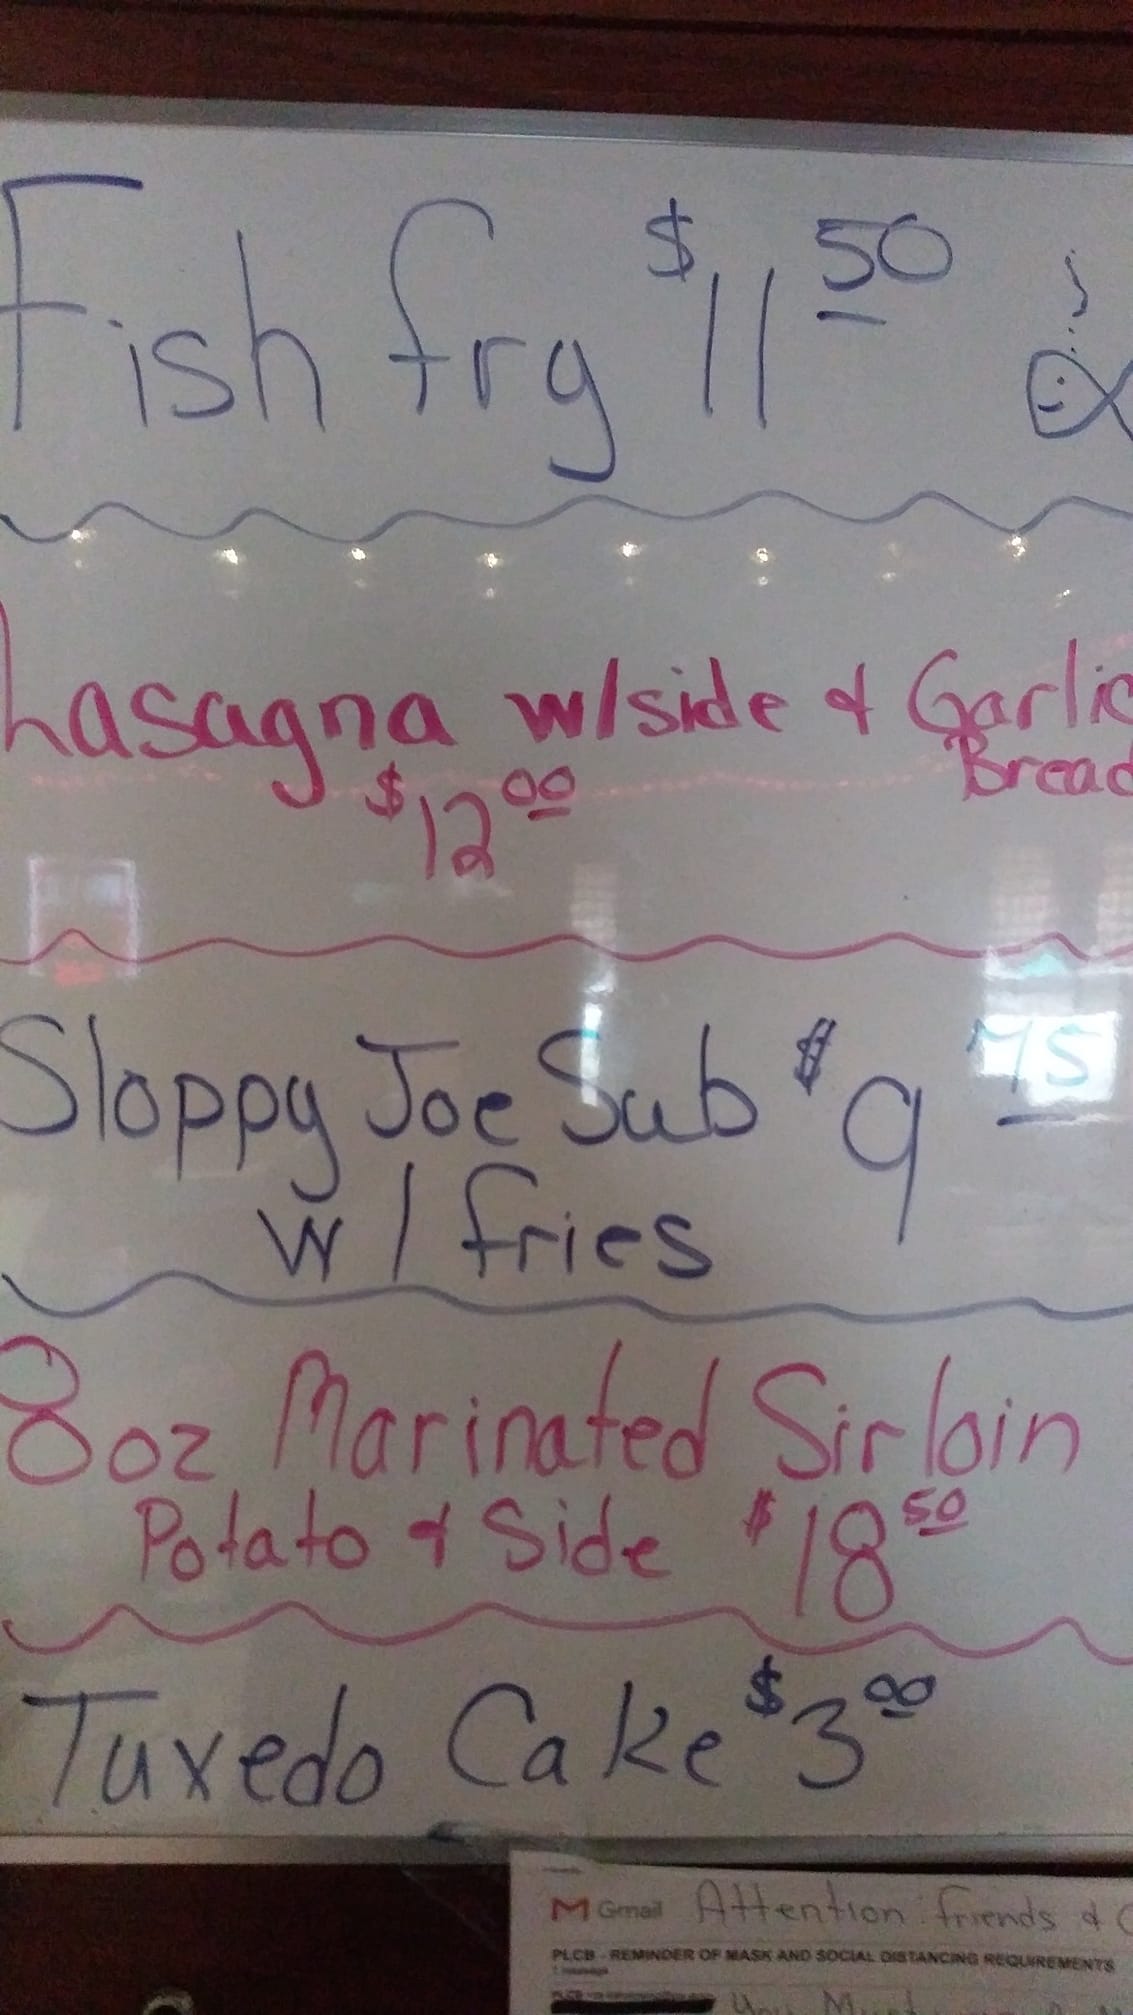 Fish fry $11 50
Lasagna w/side & Garlic
Bread
$12 00
Sloppy Joe Sub $9 75
w/fries
8oz Marinated Sirloin
Potato & Side $18 50
Tuxedo Cake $3 00
M Gmail Attention friends &
PLCB - REMINDER OF MASK AND SOCIAL DISTANCING REQUIREMENTS
1 message
You Must